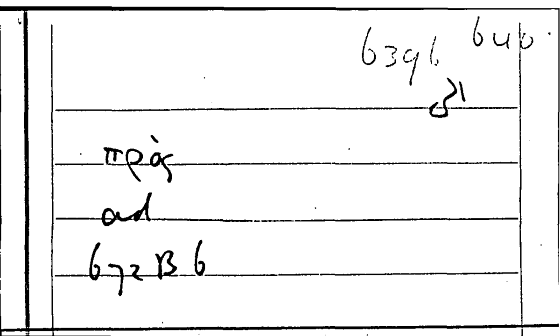 639b 640
πρὸς
ad
672 B 6